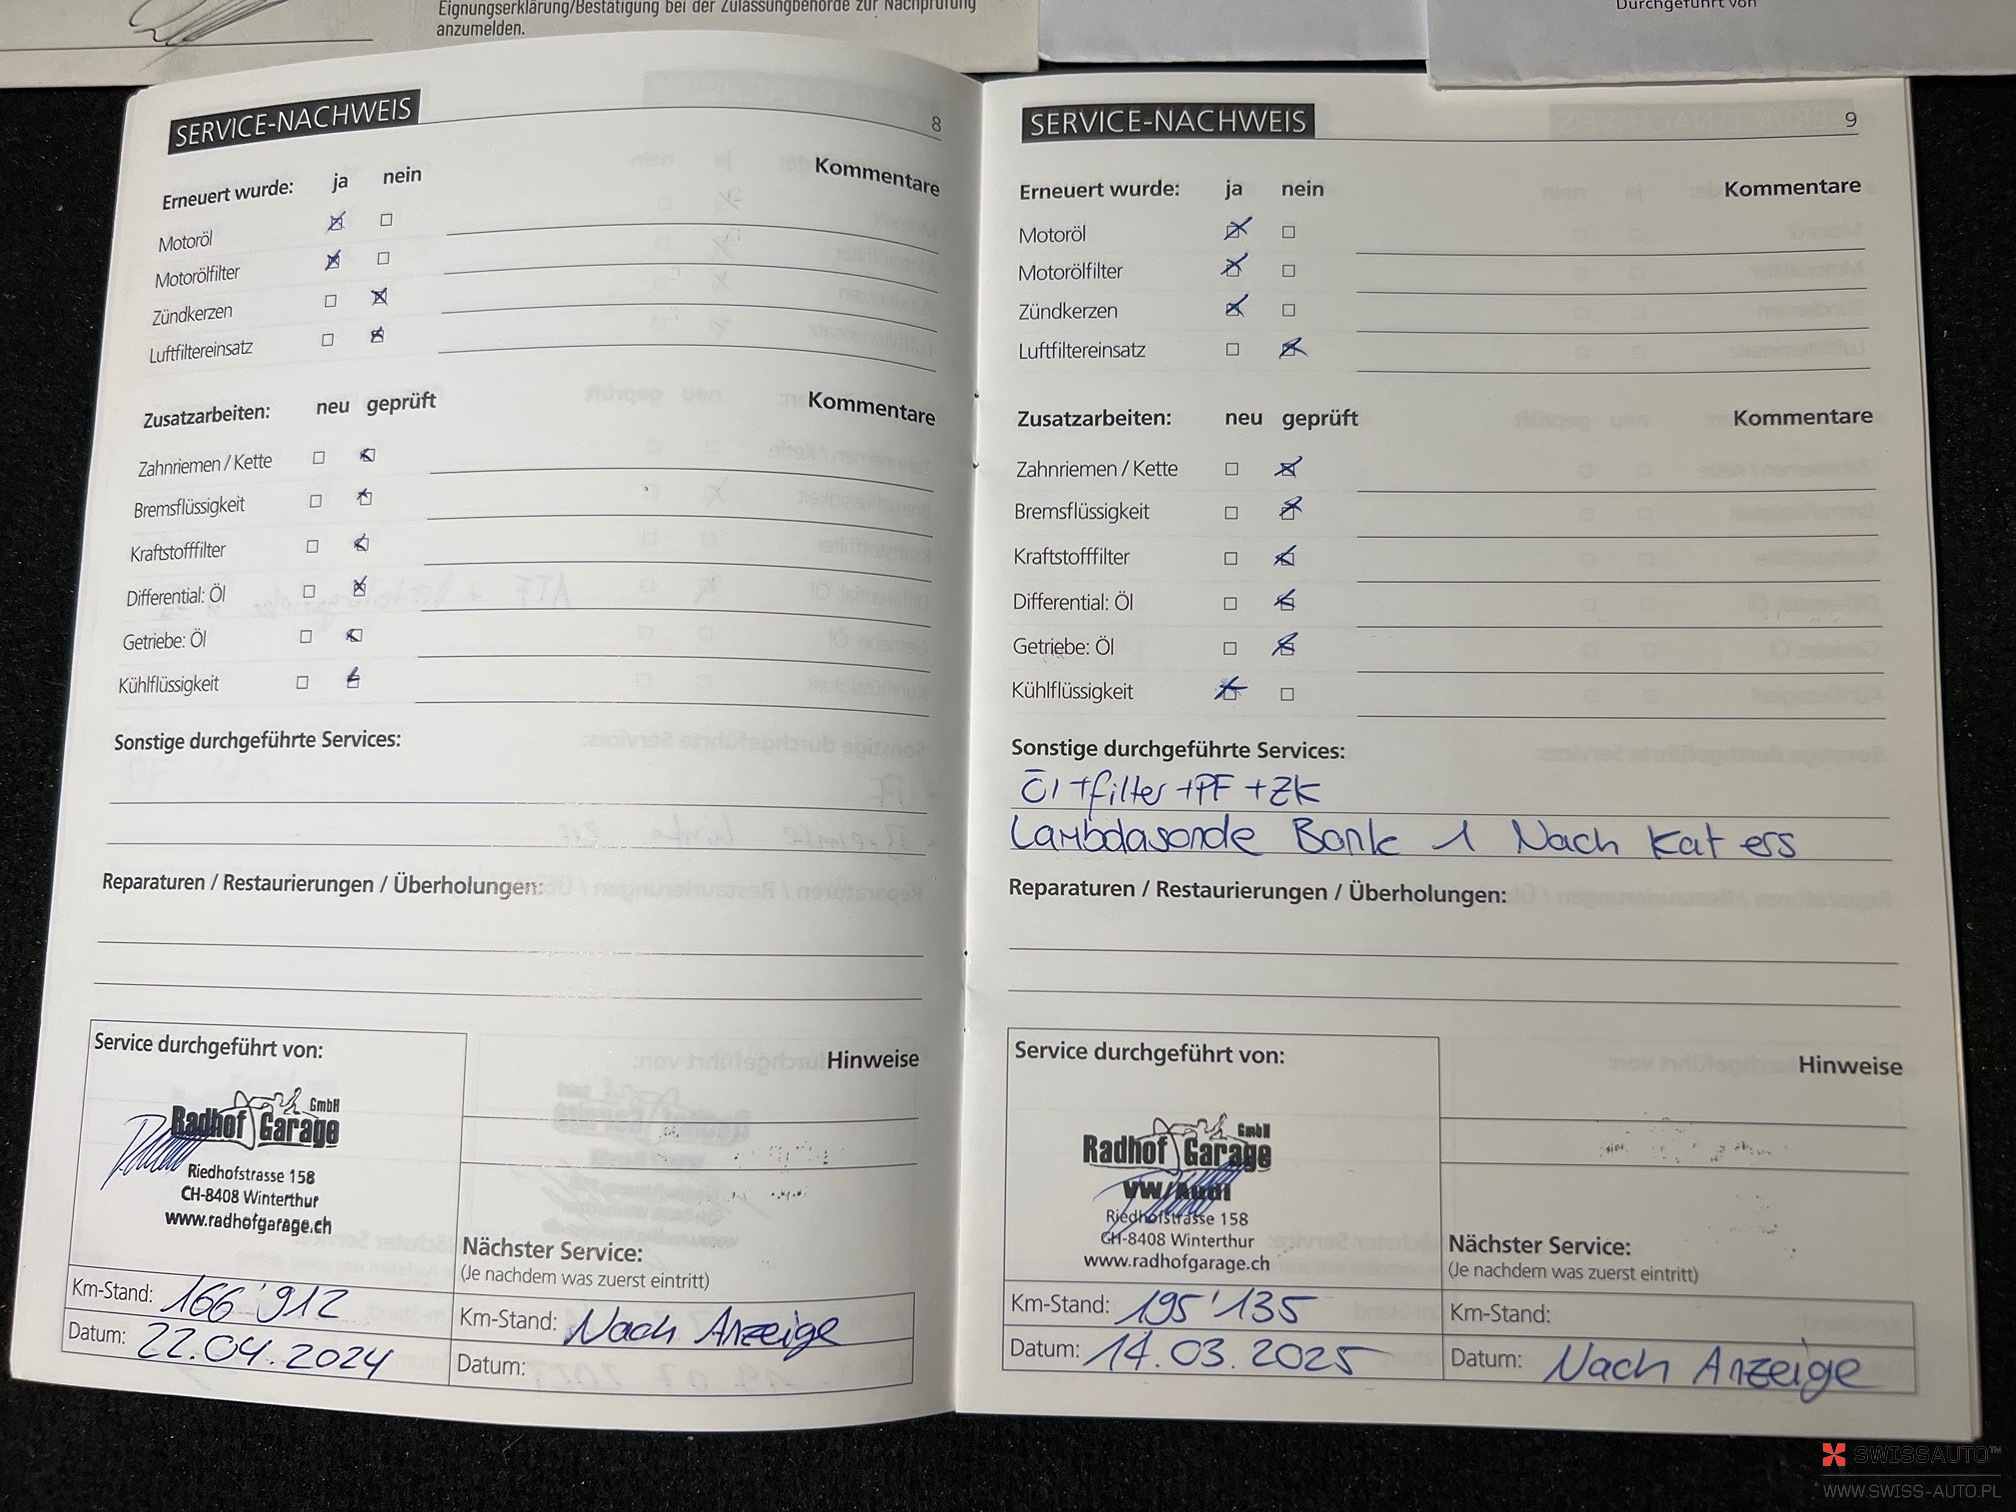 Eignungserklärung/Bestätigung bei der Zulassungbehörde zur Nachprüfung
anzumelden.
Durchgeführt von
SERVICE-NACHWEIS
8
Erneuert wurde: ja nein Kommentare
Motoröl
Motorölfilter
Zündkerzen
Luftfiltereinsatz
Zusatzarbeiten: neu geprüft Kommentare
Zahnriemen / Kette
Bremsflüssigkeit
Kraftstofffilter
Differential: Öl
Getriebe: Öl
Kühlflüssigkeit
Sonstige durchgeführte Services:
Reparaturen / Restaurierungen / Überholungen:
Service durchgeführt von:
Hinweise
Radhof Garage GmbH
Riedhofstrasse 158
CH-8408 Winterthur
www.radhofgarage.ch
Nächster Service:
(Je nachdem was zuerst eintritt)
Km-Stand: 166'912
Km-Stand: Nach Anzeige
Datum: 22.04.2024
Datum:
SERVICE-NACHWEIS
9
Erneuert wurde: ja nein Kommentare
Motoröl
Motorölfilter
Zündkerzen
Luftfiltereinsatz
Zusatzarbeiten: neu geprüft Kommentare
Zahnriemen / Kette
Bremsflüssigkeit
Kraftstofffilter
Differential: Öl
Getriebe: Öl
Kühlflüssigkeit
Sonstige durchgeführte Services:
Öl+filter+PF+ZK
Lambdasonde Bank 1 Nach Kat ers
Reparaturen / Restaurierungen / Überholungen:
Service durchgeführt von:
Hinweise
Radhof Garage GmbH
VW/Audi
Riedhofstrasse 158
CH-8408 Winterthur
www.radhofgarage.ch
Nächster Service:
(Je nachdem was zuerst eintritt)
Km-Stand: 195'135
Km-Stand:
Datum: 14.03.2025
Datum: Nach Anzeige
SWISSAUTO™
WWW.SWISS-AUTO.PL